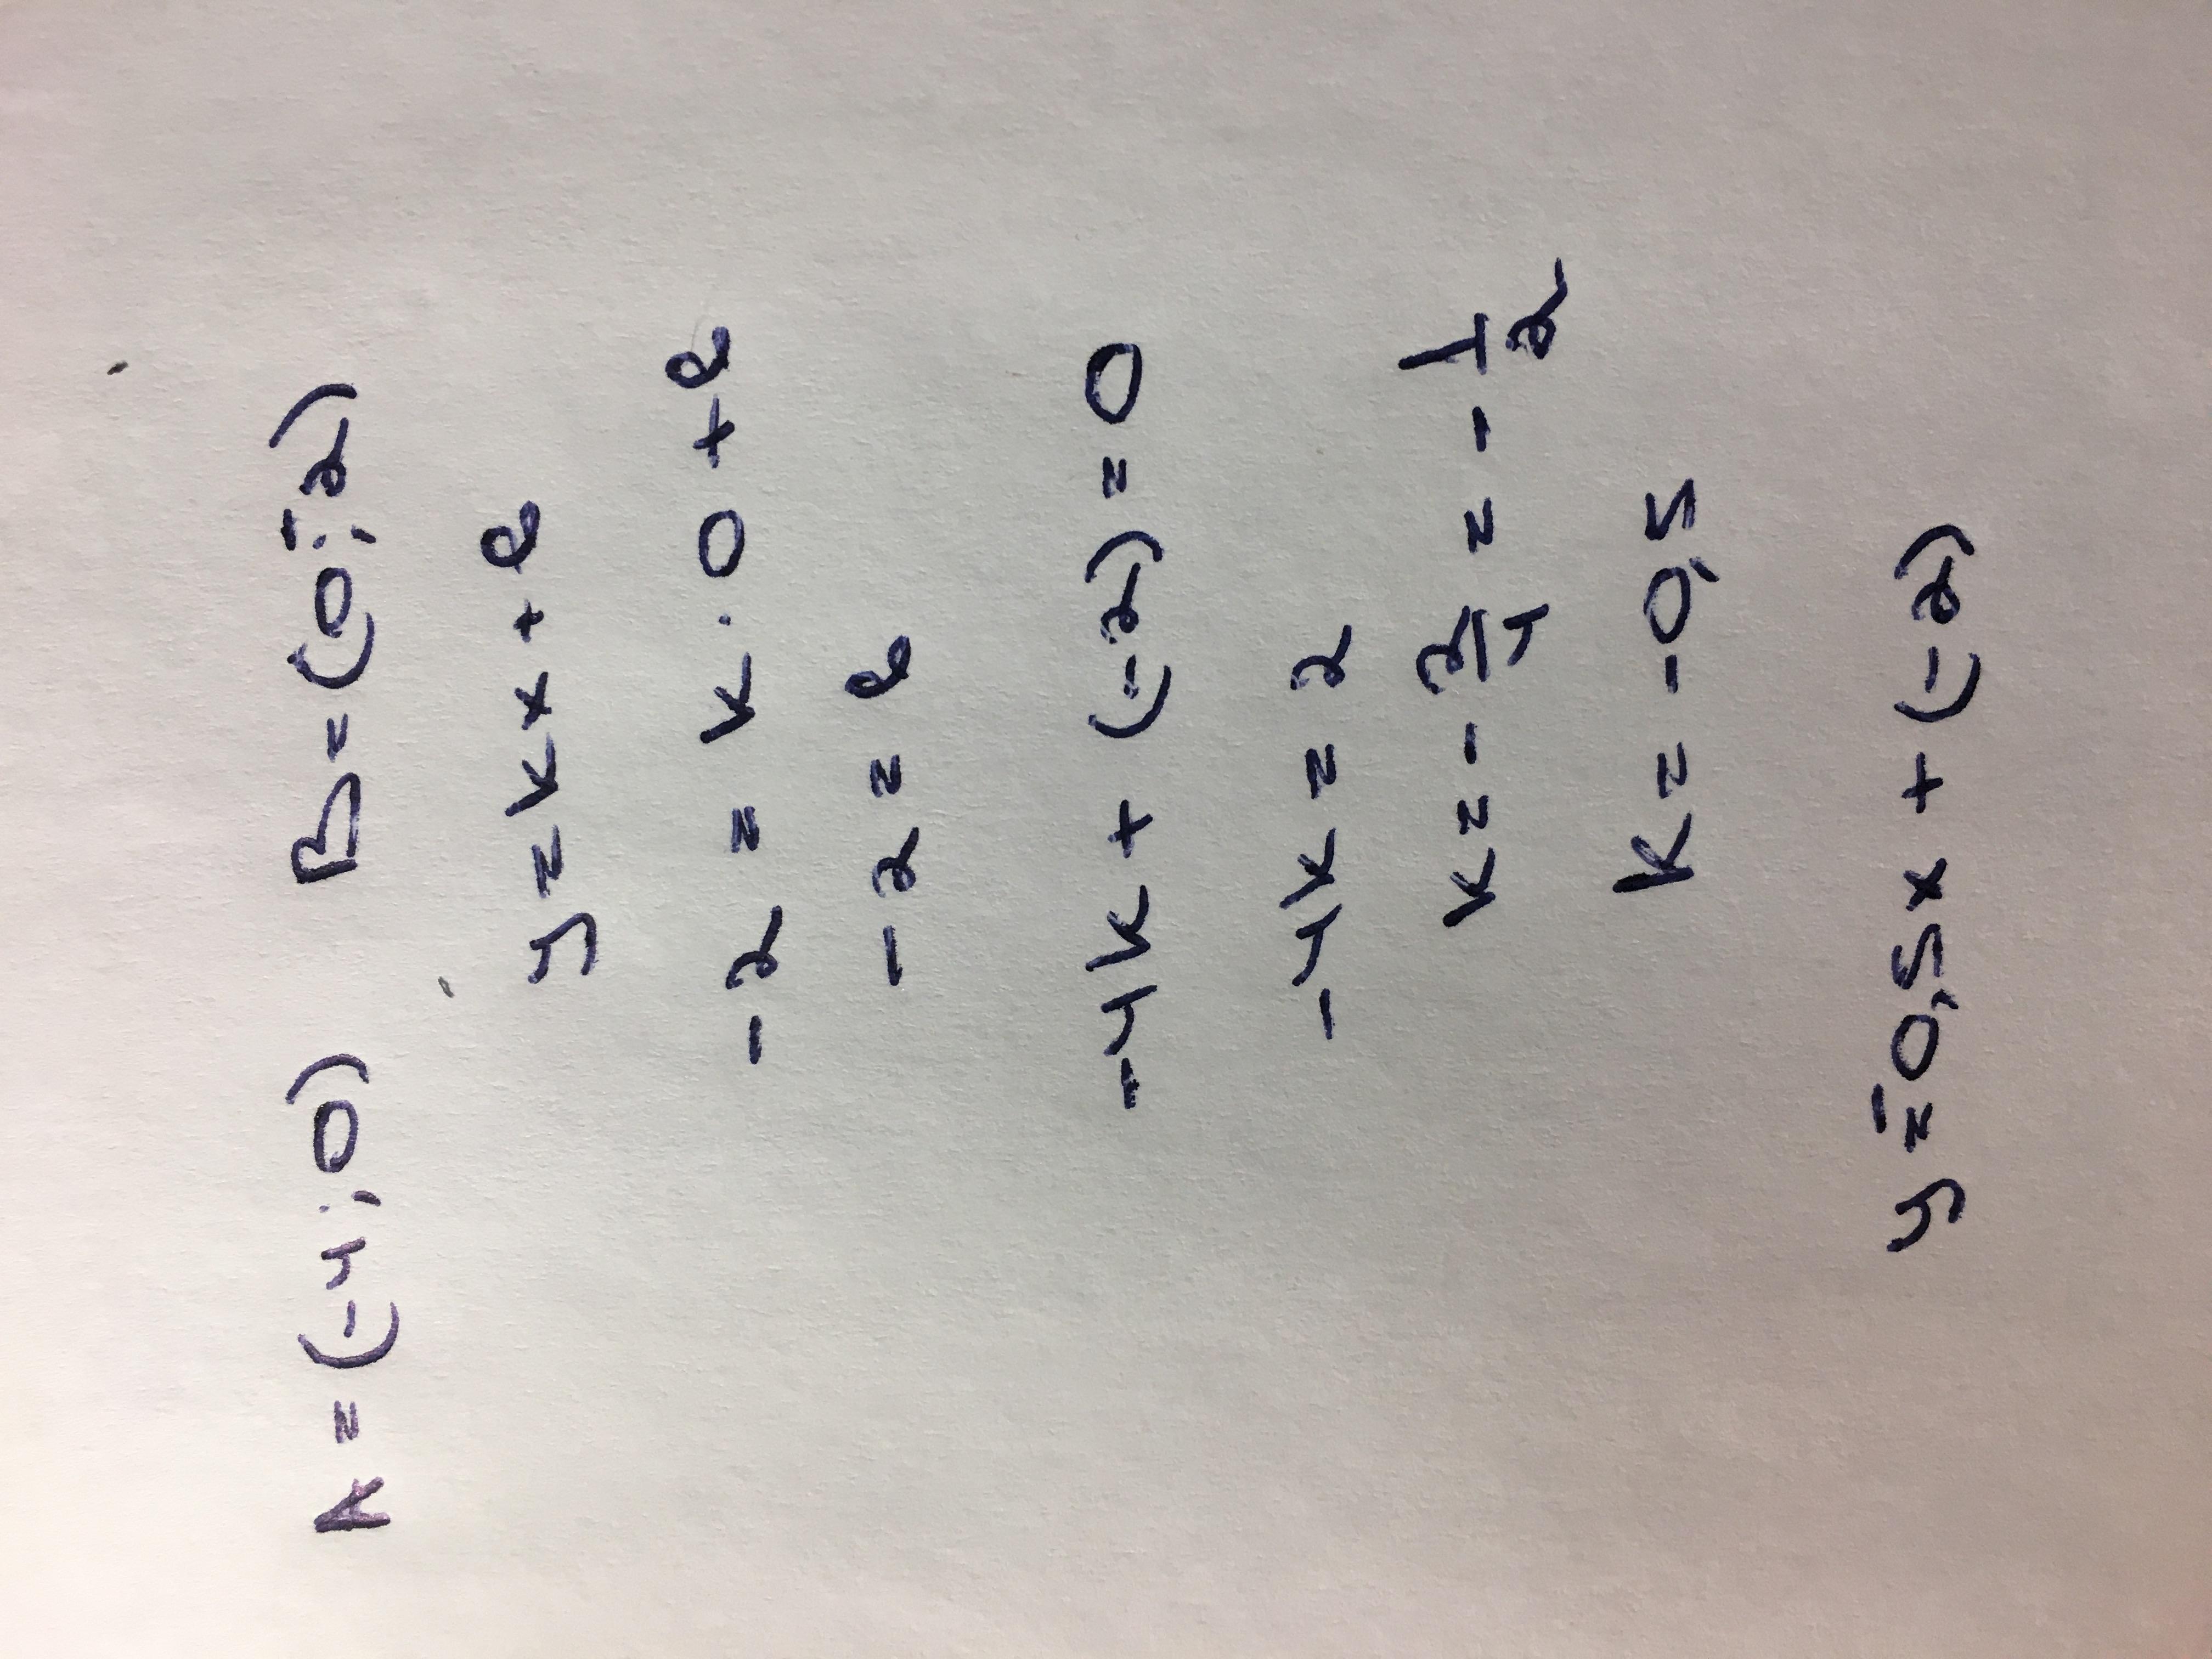 A = (-4; 0) B = (0; -2)
y = kx + b
-2 = k · 0 + b
-2 = b
-4k + (-2) = 0
-4k = 2
k = - 2/4 = - 1/2
k = -0,5
y = -0,5x + (-2)